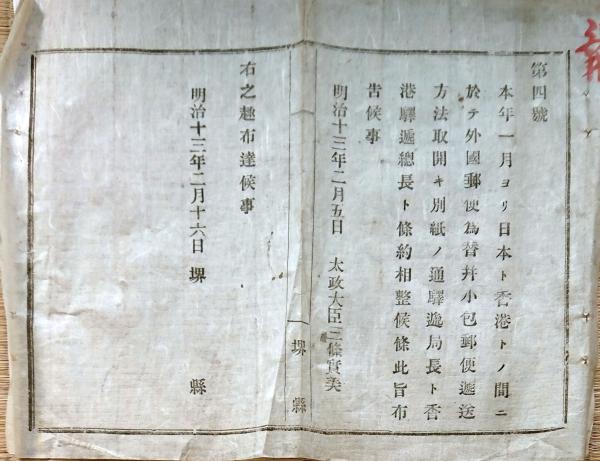 第四號
本年一月ヨリ日本ト香港トノ間ニ
於テ外國郵便爲替幷小包郵便遞送
方法取開キ別紙ノ通驛遞局長ト香
港驛遞總長ト條約相整候條此旨布
告候事
明治十三年二月五日 太政大臣三條實美
堺縣
右之趣布達候事
明治十三年二月十六日 堺縣